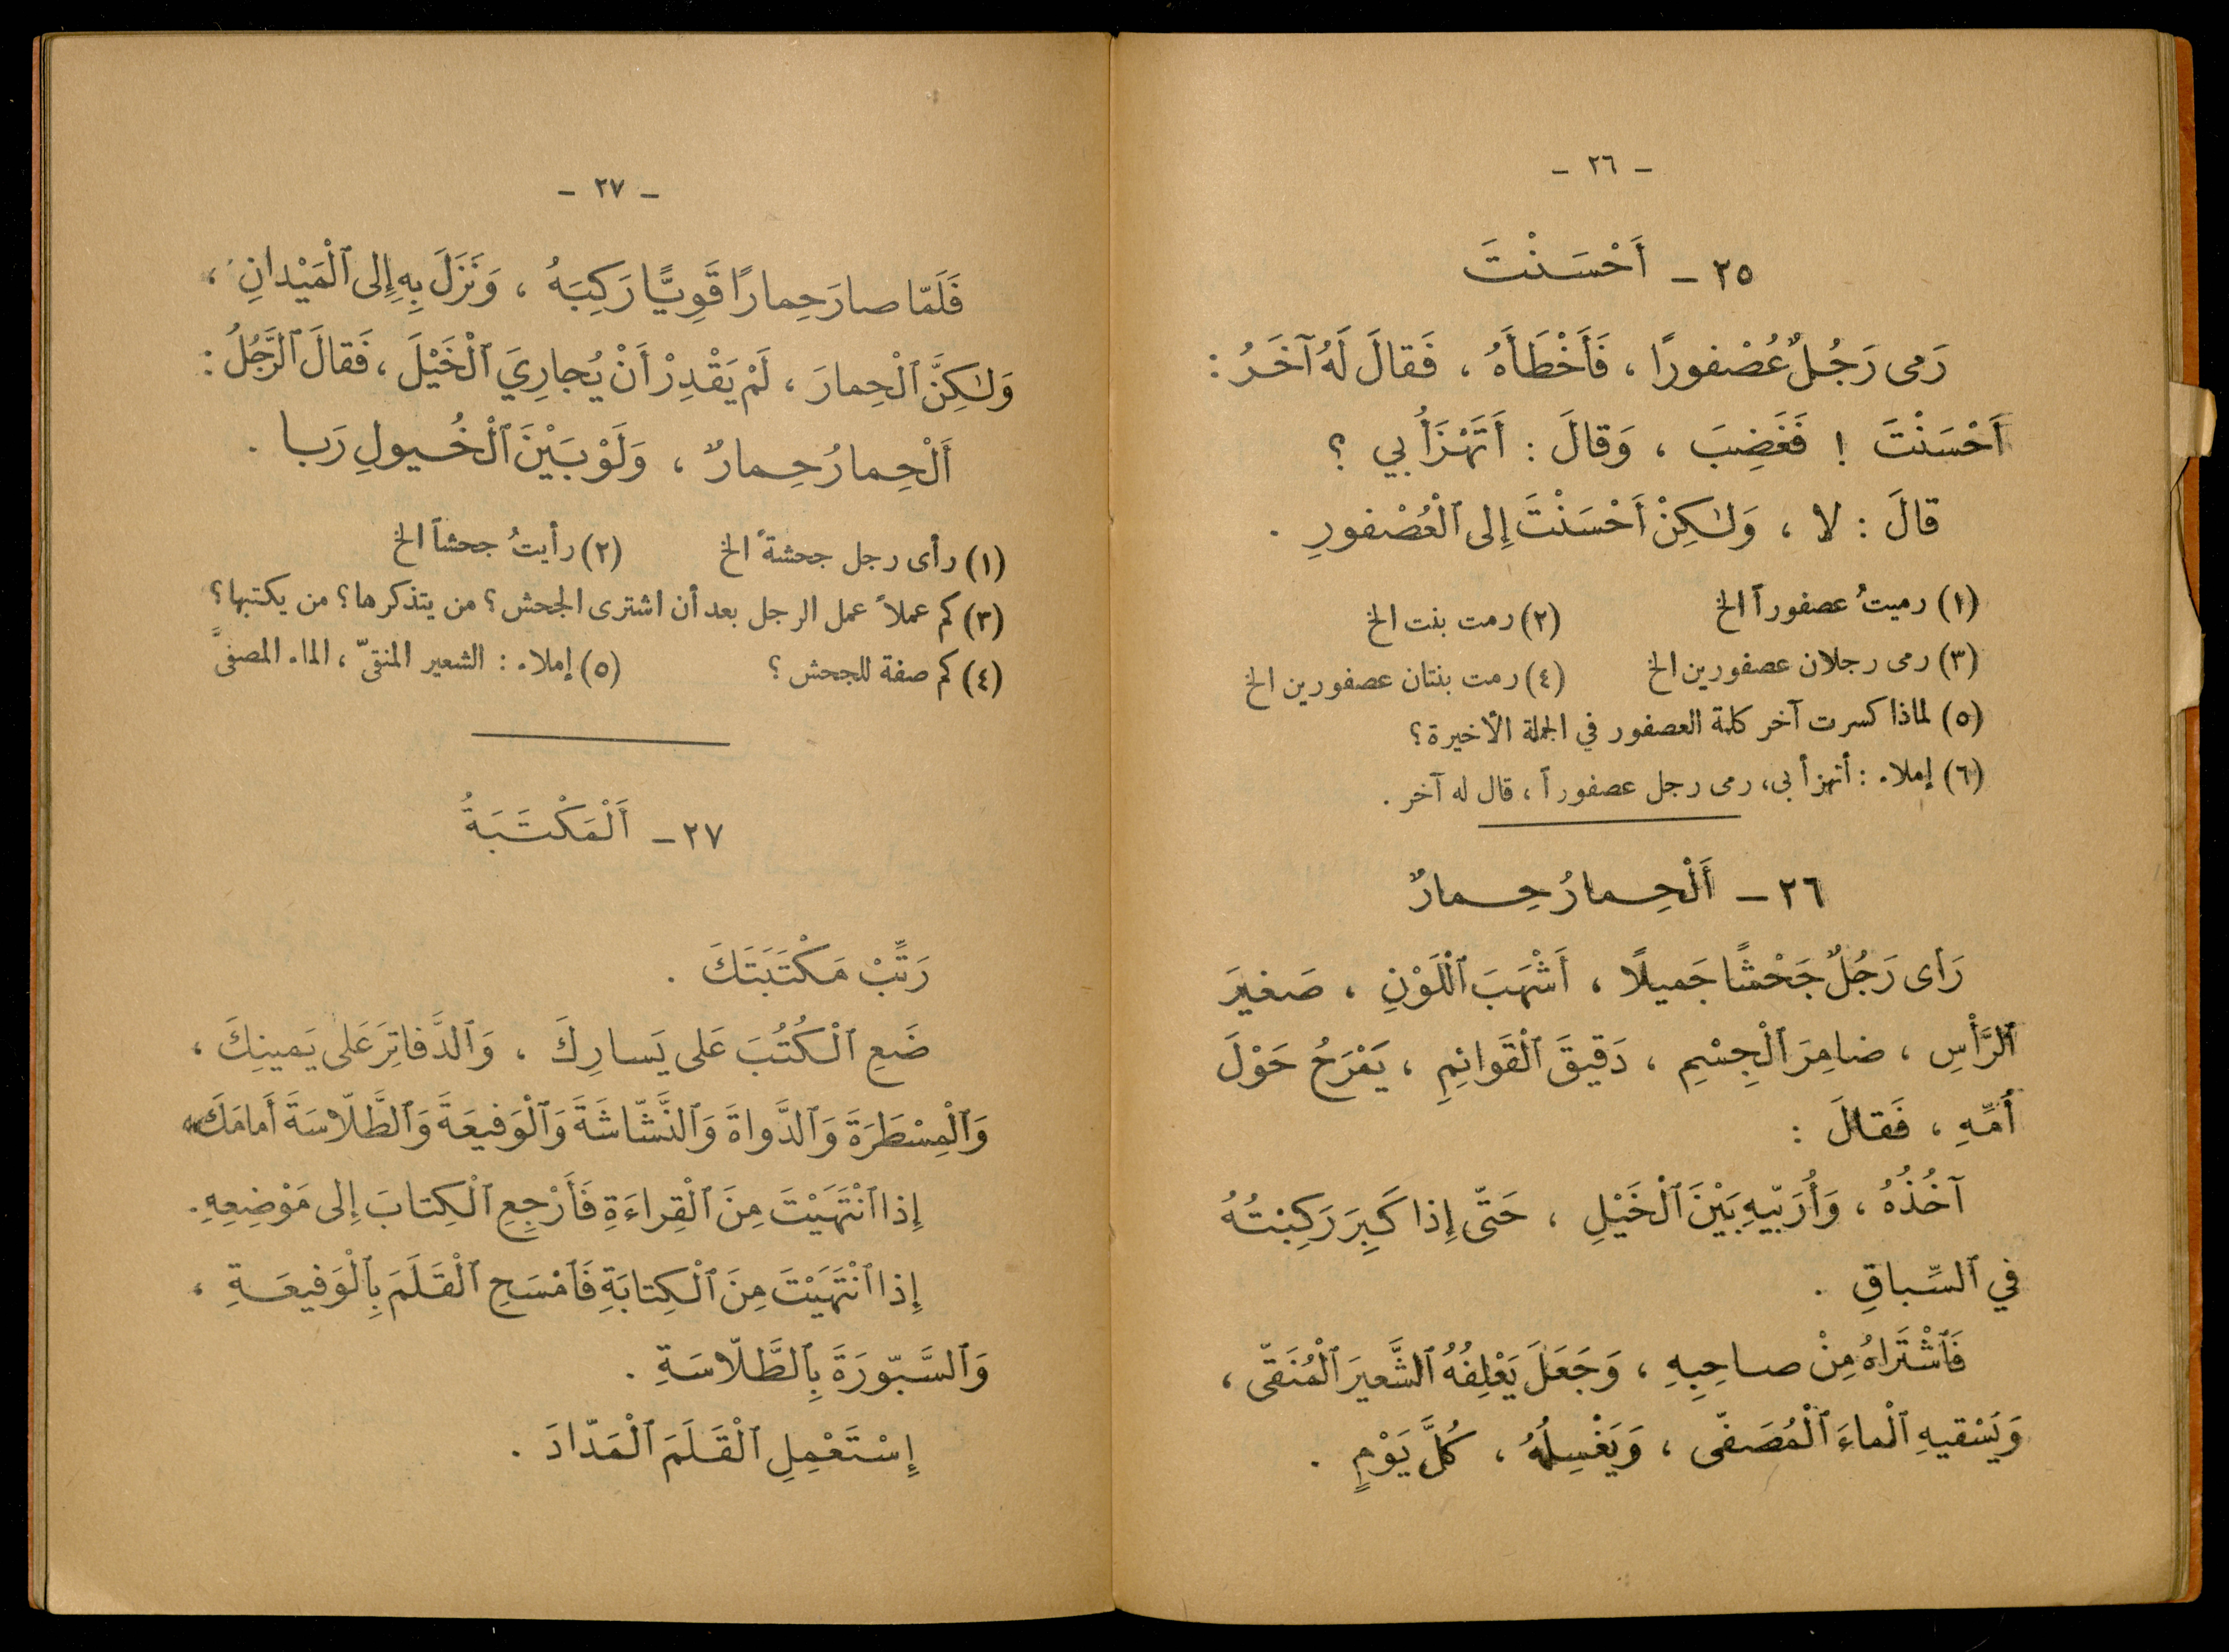 - ٢٦ -
٢٥ - أَحْسَنْتَ
رَمى رَجُلٌ عُصْفورًا ، فَأَخْطَأَهُ ، فَقالَ لَهُ آخَرُ :
أَحْسَنْتَ ! فَغَضِبَ ، وَقالَ : أَتَهْزَأُ بي ؟
قالَ : لا ، وَلٰكِنْ أَحْسَنْتَ إِلى ٱلْعُصْفورِ .
(١) رميتُ عصفوراً الخ (٢) رمت بنت الخ
(٣) رمى رجلان عصفورين الخ (٤) رمت بنتان عصفورين الخ
(٥) لماذا كسرت آخر كلمة العصفور في الجملة الأخيرة ؟
(٦) إملاء : أتهزأ بي، رمى رجل عصفوراً ، قال له آخر .
٢٦ - أَلْحِمارُ حِمارٌ
رَأى رَجُلٌ جَحْشًا جَميلًا ، أَشْهَبَ ٱللَّوْنِ ، صَغيرَ
ٱلرَّأْسِ ، ضامِرَ ٱلْجِسْمِ ، دَقيقَ ٱلْقَوائِمِ ، يَمْرَحُ حَوْلَ
أُمِّهِ ، فَقالَ :
آخُذُهُ ، وَأُرَبّيهِ بَيْنَ ٱلْخَيْلِ ، حَتّى إِذا كَبِرَ رَكِبْتُهُ
في ٱلسِّباقِ .
فَٱشْتَراهُ مِنْ صاحِبِهِ ، وَجَعَلَ يَعْلِفُهُ ٱلشَّعيرَ ٱلْمُنَقّى ،
وَيَسْقيهِ ٱلْماءَ ٱلْمُصَفّى ، وَيَغْسِلُهُ ، كُلَّ يَوْمٍ .
- ٢٧ -
فَلَمّا صارَ حِمارًا قَوِيًّا رَكِبَهُ ، وَنَزَلَ بِهِ إِلى ٱلْمَيْدانِ ،
وَلٰكِنَّ ٱلْحِمارَ ، لَمْ يَقْدِرْ أَنْ يُجارِيَ ٱلْخَيْلَ ، فَقالَ ٱلرَّجُلُ :
أَلْحِمارُ حِمارٌ ، وَلَوْ بَيْنَ ٱلْخُيولِ رَبا .
(١) رأى رجل جحشةً الخ (٢) رأيتُ جحشاً الخ
(٣) كم عملاً عمل الرجل بعد أن اشترى الجحش ؟ من يتذكرها ؟ من يكتبها ؟
(٤) كم صفة للجحش ؟ (٥) إملاء : الشعير المنقّى ، الماء المصفَّى
٢٧ - أَلْمَكْتَبَةُ
رَتِّبْ مَكْتَبَتَكَ .
ضَعِ ٱلْكُتُبَ عَلى يَسارِكَ ، وَٱلدَّفاتِرَ عَلى يَمينِكَ ،
وَٱلْمِسْطَرَةَ وَٱلدَّواةَ وَٱلنَّشّاشَةَ وَٱلْوَفيعَةَ وَٱلطَّلّاسَةَ أَمامَكَ .
إِذا ٱنْتَهَيْتَ مِنَ ٱلْقِراءَةِ فَأَرْجِعِ ٱلْكِتابَ إِلى مَوْضِعِهِ .
إِذا ٱنْتَهَيْتَ مِنَ ٱلْكِتابَةِ فَٱمْسَحِ ٱلْقَلَمَ بِٱلْوَفيعَةِ ،
وَٱلسَّبّورَةَ بِٱلطَّلّاسَةِ .
إِسْتَعْمِلِ ٱلْقَلَمَ ٱلْمَدّادَ .